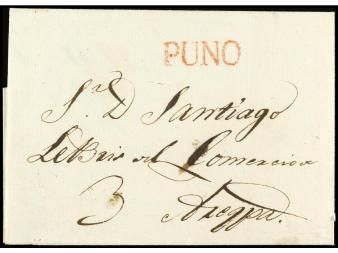 PUNO
Sr. D Santiago
LeBris del Comercio
3 Areqpa.